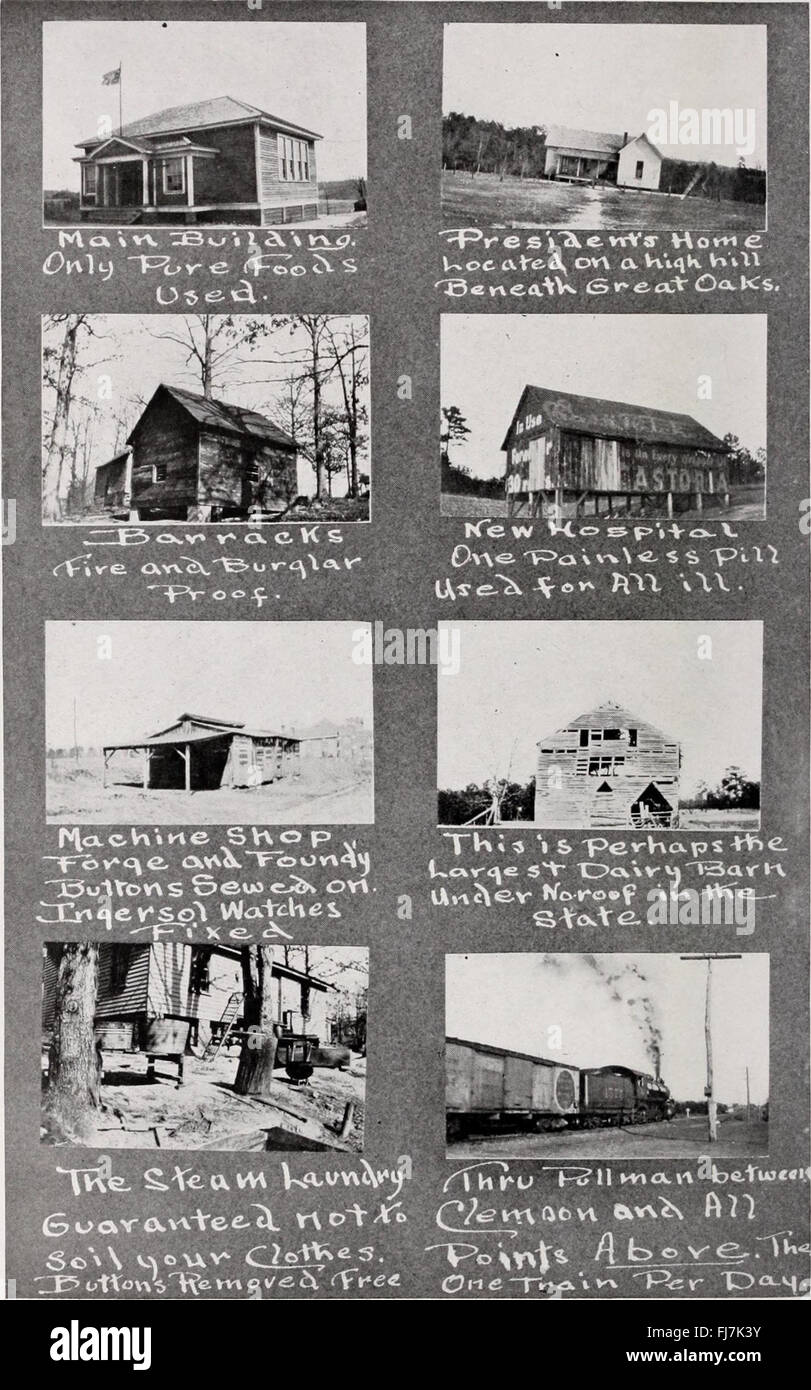 Main Building.
Only Pure Foods
Used.
President's Home
Located on a high hill
Beneath Great Oaks.
In Use
ASTORIA
Barracks
Fire and Burglar
Proof.
New Hospital
One Painless Pill
Used for All ill.
Machine Shop,
Forge and Foundy
Buttons Sewed on.
Ingersol Watches
Fixed
This is Perhaps the
Largest Dairy Barn
Under No roof in the
State.
The Steam Laundry
Guaranteed not to
soil your Clothes.
Buttons Removed Free
Thru Pullman between
Clemson and All
Points Above. The
One Train Per Day.
alamy
Image ID: FJ7K3Y
www.alamy.com